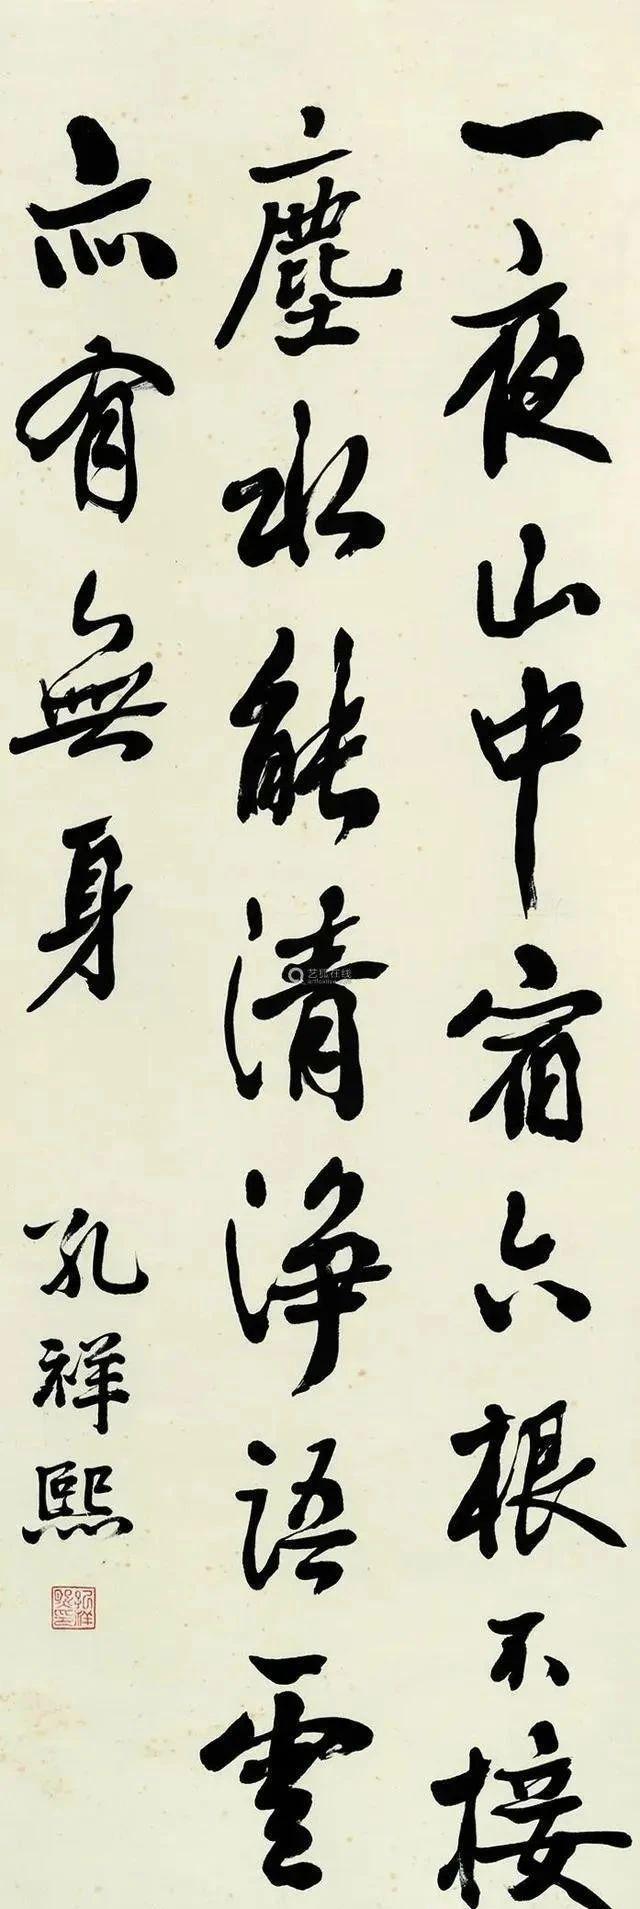 一夜山中宿六根不接
塵水能清淨語雲
亦有無身
孔祥熙
艺狐在线